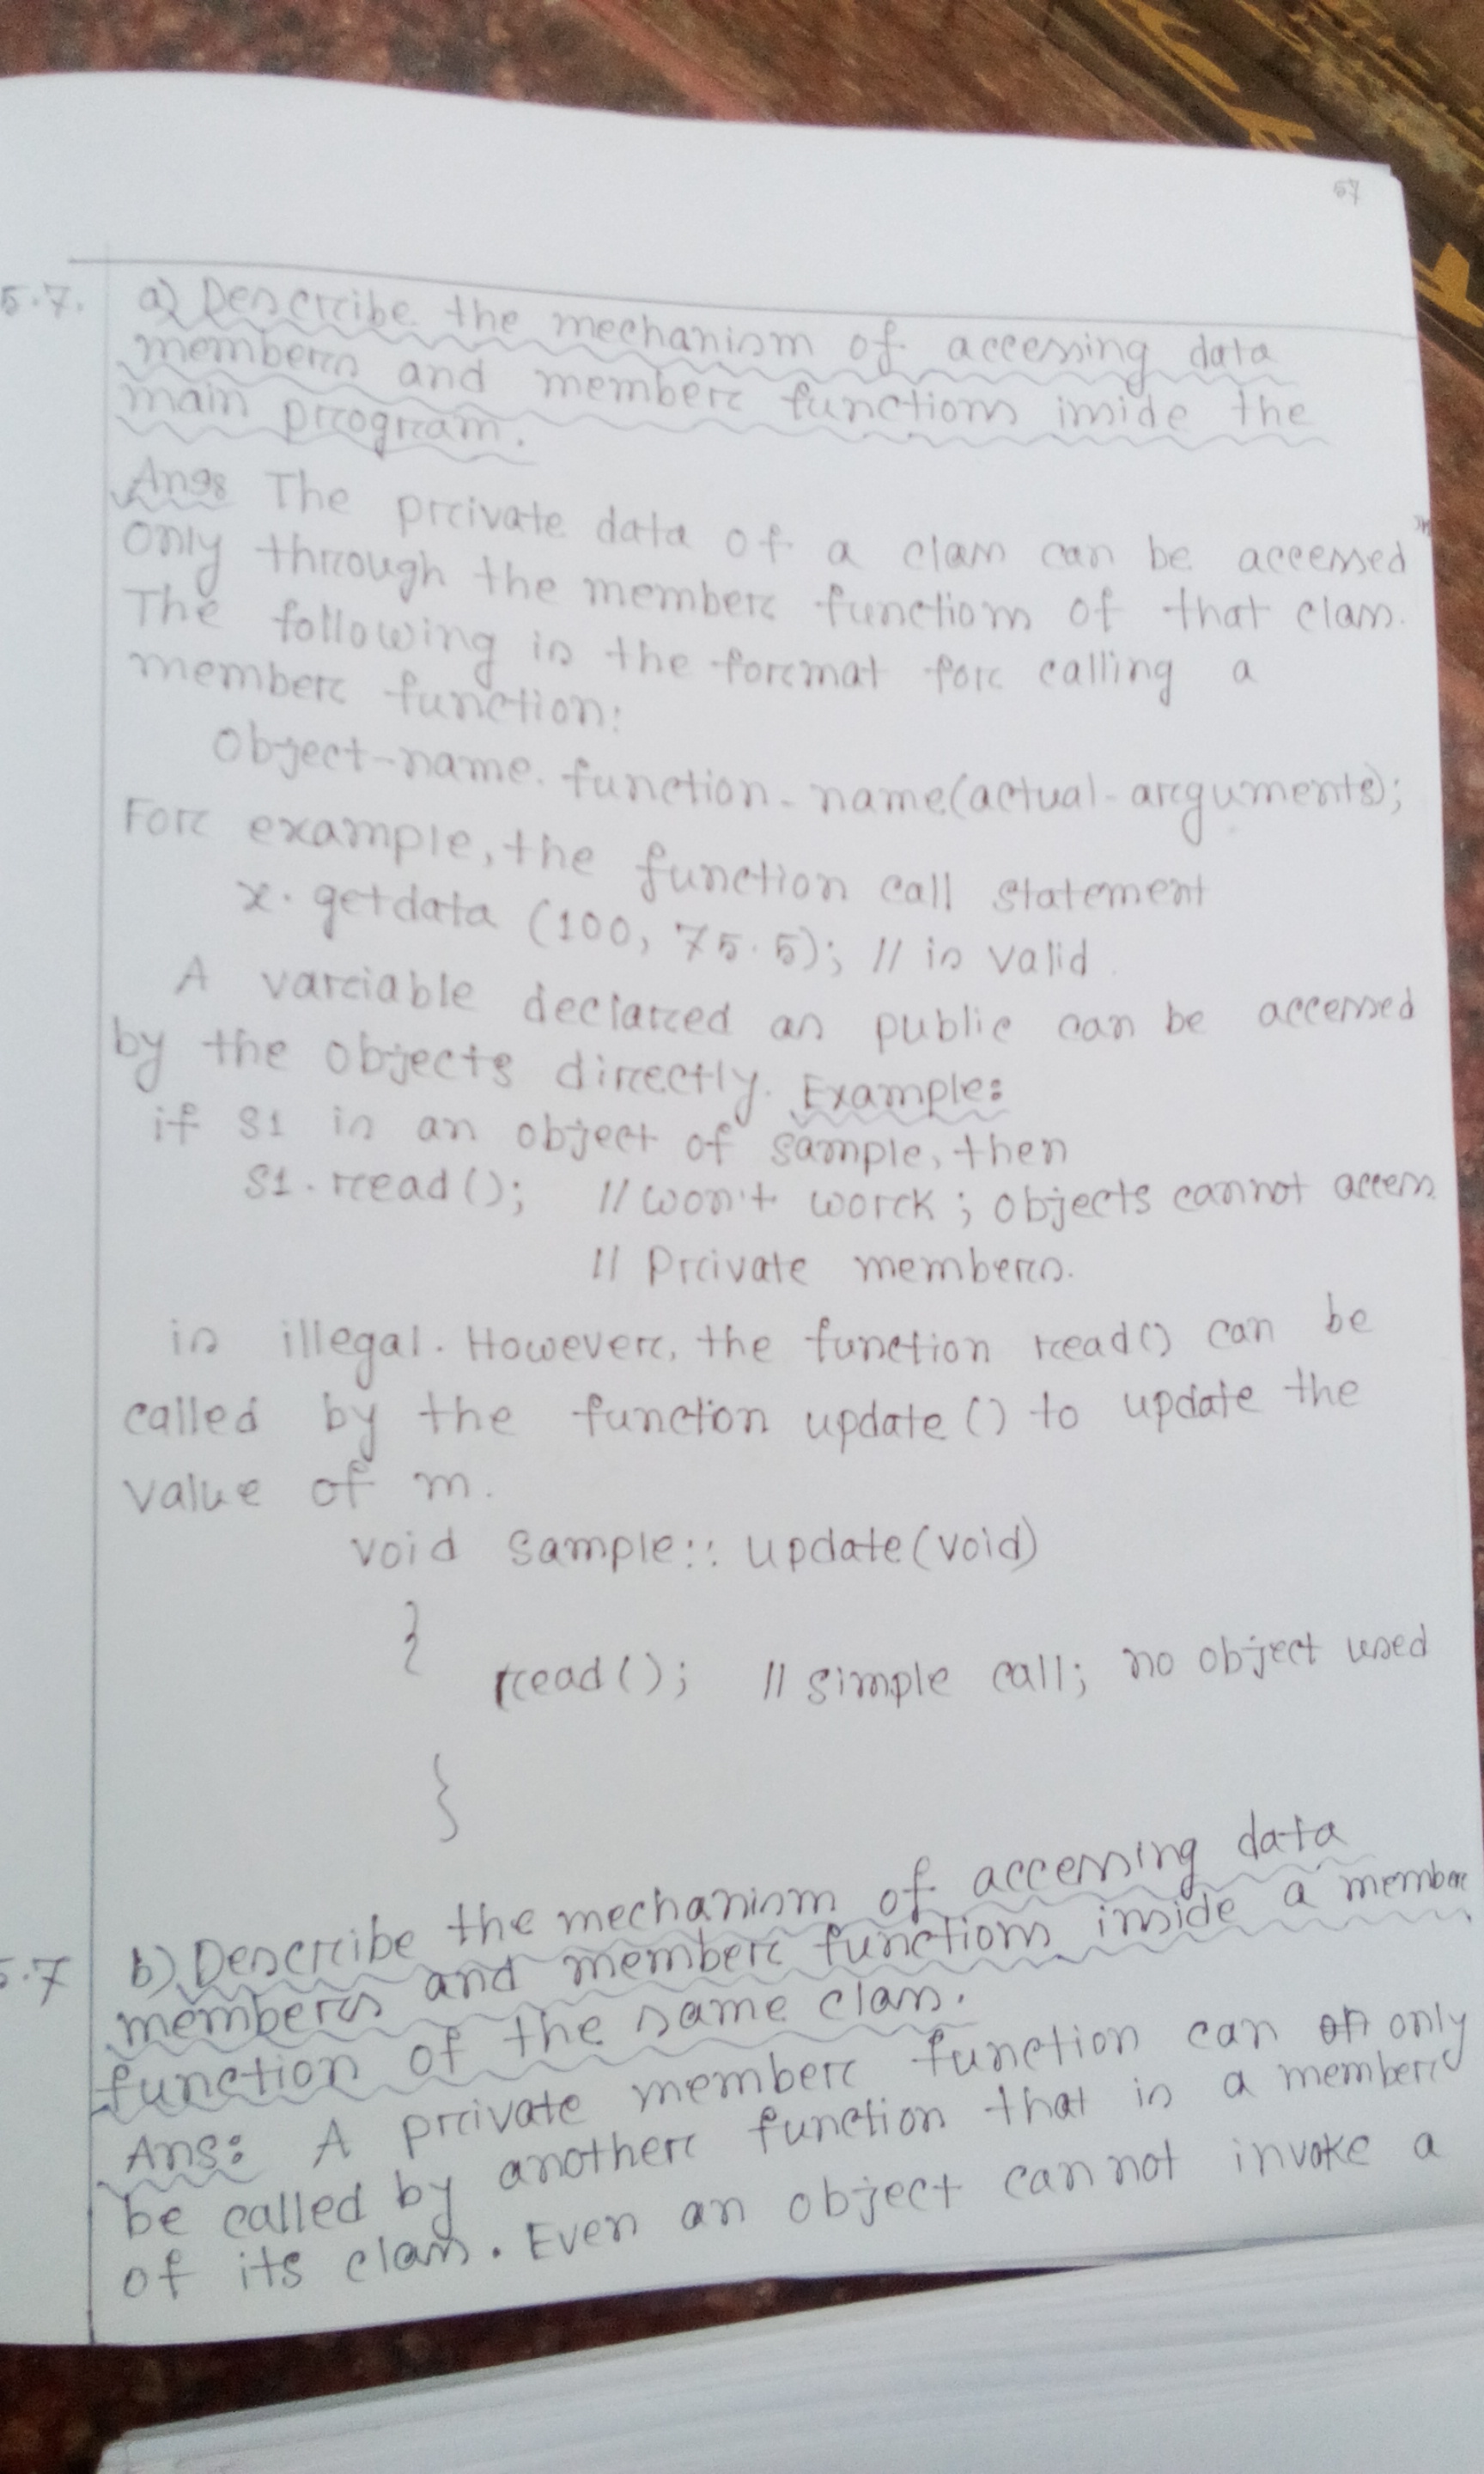 57
5.7. a) Describe the mechanism of accessing data
members and member functions inside the
main program.
Ans: The private data of a class can be accessed
only through the member functions of that class.
The following is the format for calling a
member function:
object-name.function-name(actual-arguments);
For example, the function call statement
x.getdata (100, 75.5); // is valid.
A variable declared as public can be accessed
by the objects directly. Example:
if S1 is an object of sample, then
S1.read(); // won't work; objects cannot access
// Private members.
is illegal. However, the function read() can be
called by the function update() to update the
value of m.
void sample:: update(void)
{
read(); // simple call; no object used
}
5.7 b) Describe the mechanism of accessing data
members and member functions inside a member
function of the same class.
Ans: A private member function can only
be called by another function that is a member
of its class. Even an object can not invoke a